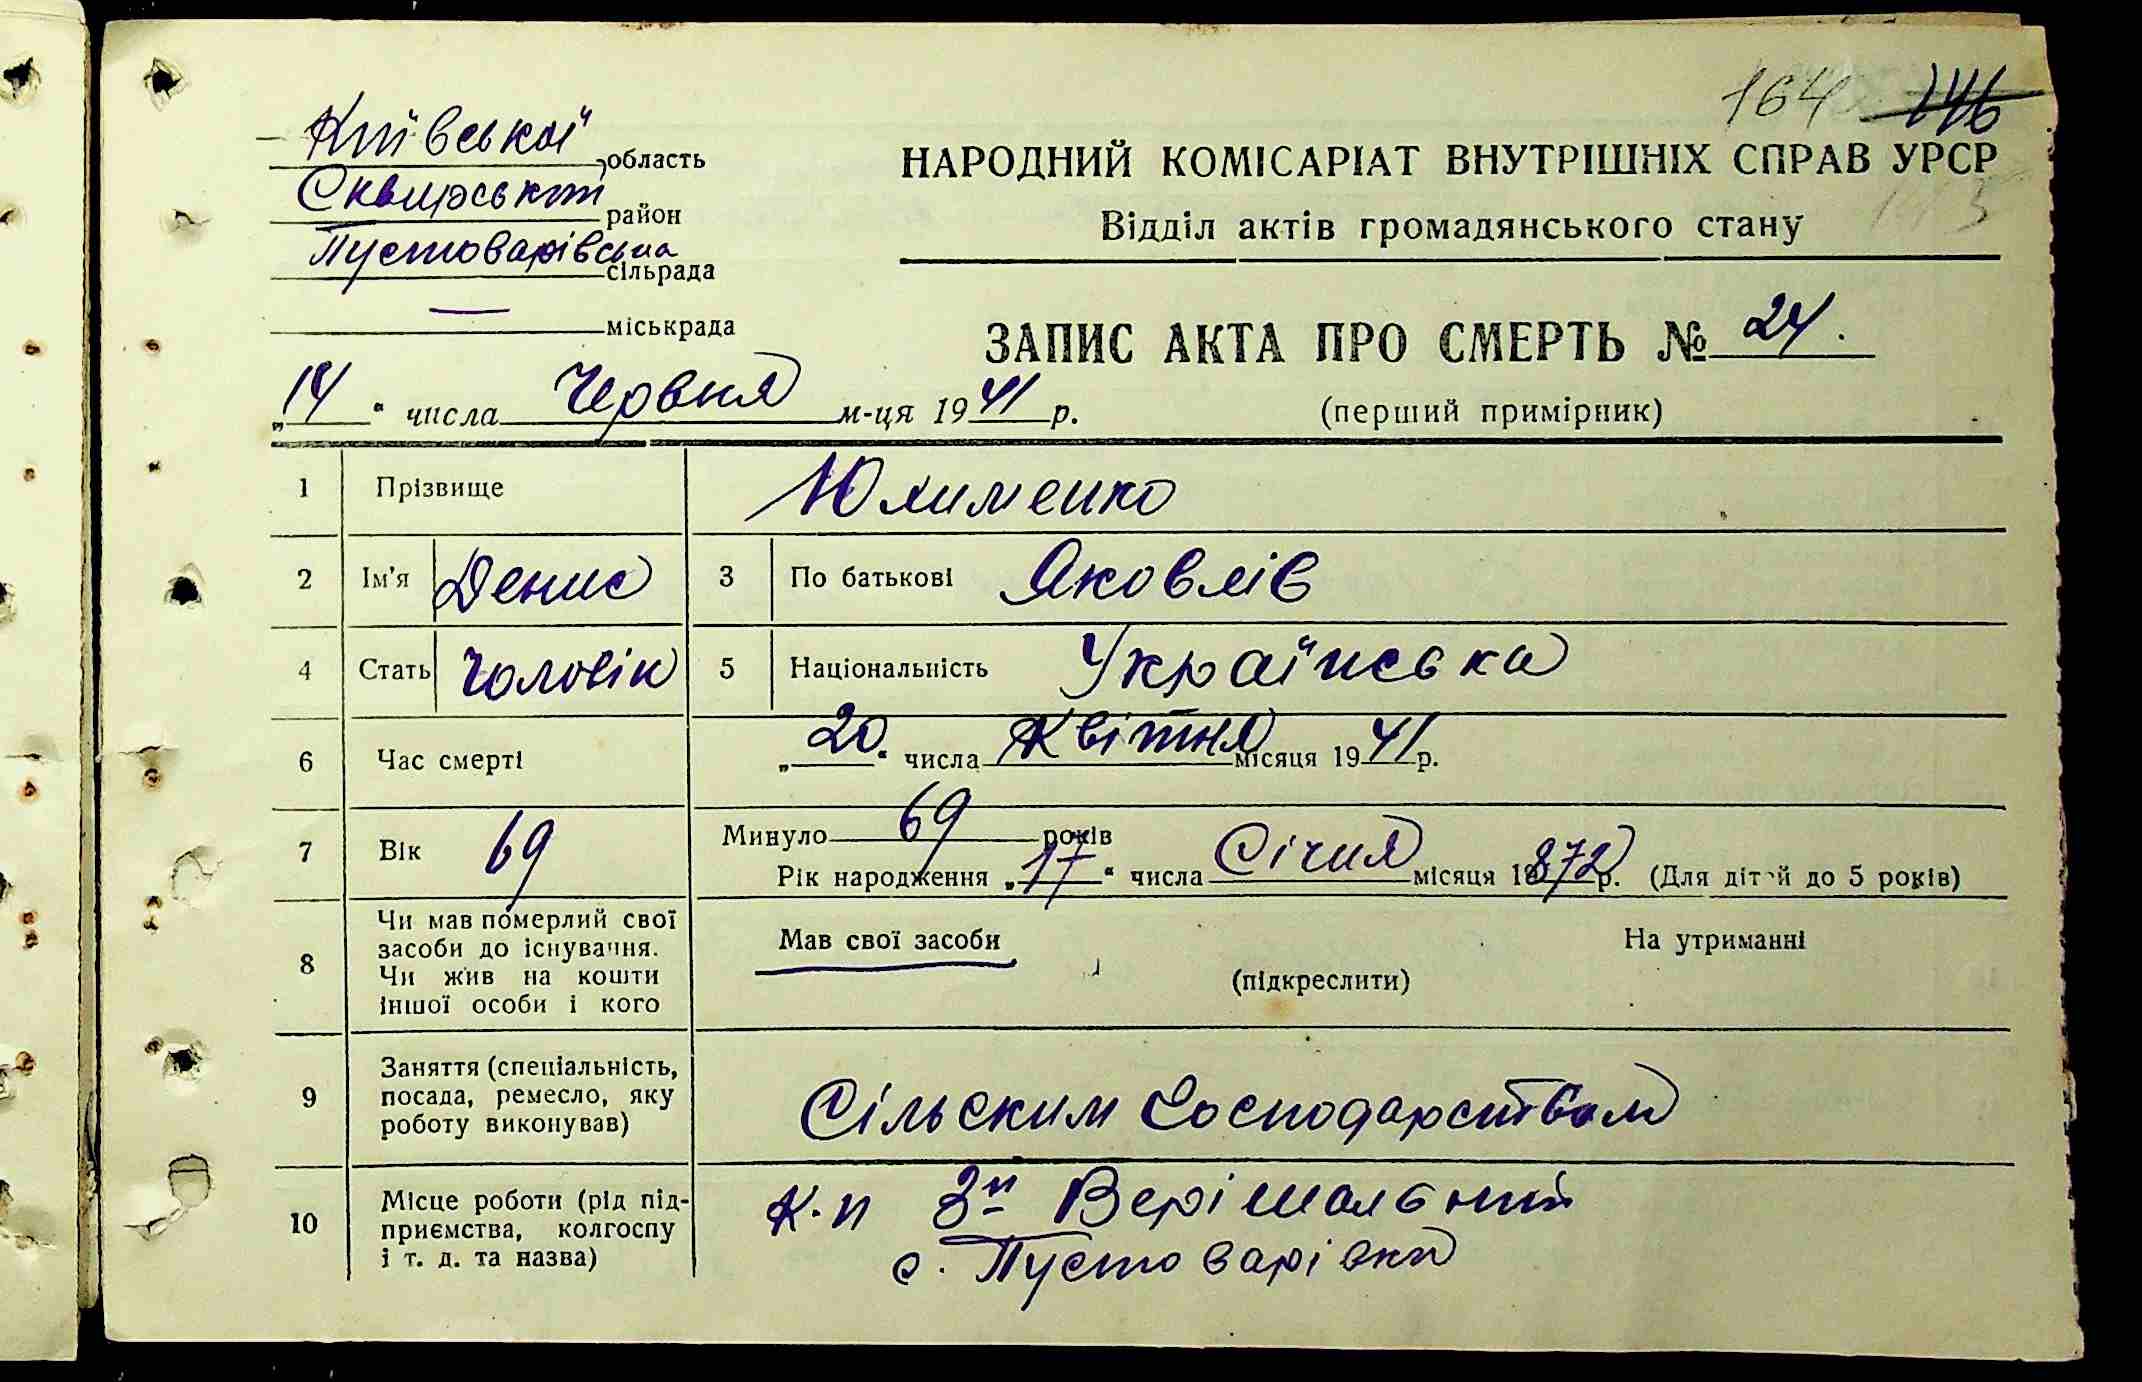 164 146
Київської область
НАРОДНИЙ КОМІСАРІАТ ВНУТРІШНІХ СПРАВ УРСР
Сквирський район
Відділ актів громадянського стану
Пустоварівська сільрада
— міськрада
ЗАПИС АКТА ПРО СМЕРТЬ № 24.
„14“ числа Червня м-ця 1941 р.
(перший примірник)
1 Прізвище Юхименко
2 Ім’я Денис 3 По батькові Яковлів
4 Стать Чоловік 5 Національність Українська
6 Час смерті „20“ числа Квітня місяця 1941 р.
7 Вік 69 Минуло 69 років
Рік народження „17“ числа Січня місяця 1872 р. (Для дітей до 5 років)
8 Чи мав померлий свої засоби до існування. Чи жив на кошти іншої особи і кого
Мав свої засоби На утриманні
(підкреслити)
9 Заняття (спеціальність, посада, ремесло, яку роботу виконував)
Сільским Господарством
10 Місце роботи (рід підприємства, колгоспу і т. д. та назва)
с. Пустоварівки